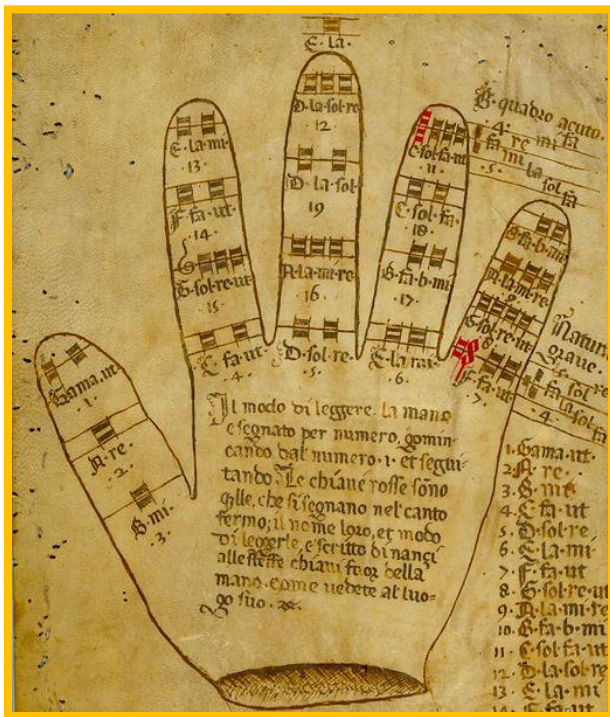 E. la.
D. la. sol. re
12
D. la. sol
19
A. la. mi. re
16
D. sol. re.
5.
E. la. mi.
13.
F. fa. ut.
.14.
G. sol. re. ut
15
C fa. ut
.4.
C sol. fa. ut
11
C. sol. fa.
18.
B. fa. b. mi
17.
E. la. mi.
6
B. quadro acuto.
.4. re mi fa
fa mi la sol fa
.5.
B. fa. b. mi
A. la. mi. re
G. sol. re. ut
F. fa. ut
.7.
Natura
grave.
.5. sol
la sol fa
.4.
Gama. ut
.1.
A. re.
.2.
B. mi.
.3.
Il modo di leggere. la mano
e segnato per numero, gomin-
cando dal numero. 1. et segui-
tando. Le chiave rosse sono
qlle, che si segnano nel canto
fermo; il nome loro, et modo
di leggerle, e scritto dinanci
alle stesse chiavi fuor della
mano. come vedete al luo-
go suo.
1. Gama. ut.
2. A. re.
3. B. mi
4. C. fa. ut
5. D. sol. re
6. E. la. mi
7. F. fa. ut
8. G. sol. re. ut
9. A. la. mi. re
10. B. fa. b. mi
11. C sol. fa. ut
12. D. la. sol. re
13. E. la. mi
14. F. fa. ut